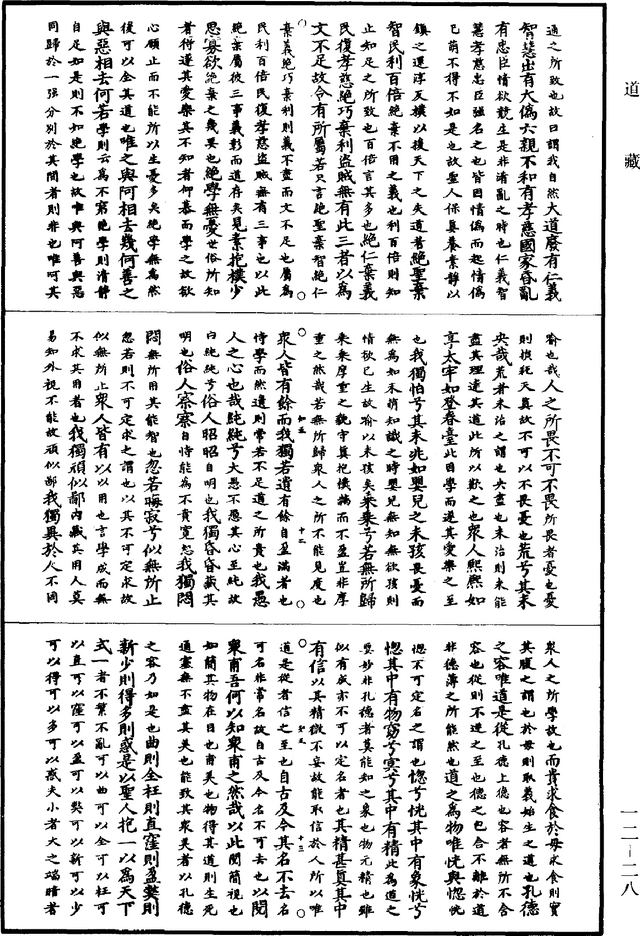 道藏
通之所致也故曰謂我自然大道廢有仁義
智慧出有大偽六親不和有孝慈國家昏亂
有忠臣情欲競生是非淆亂之時也仁義智
慧孝慈忠臣強名之也皆因情偽而起情偽
已萌不得不如是也故聖人保真養素靜以
鎮之還淳反樸以復天下之失道者絕聖棄
智民利百倍絕棄不用之義也利百倍則知
止知足之所致也百倍言其多也絕仁棄義
民復孝慈絕巧棄利盜賊無有此三者以為
文不足故令有所屬若只言絕聖棄智絕仁
棄義絕巧棄利則義不盡而文不足也屬為
民利百倍民復孝慈盜賊無有三事也以此
絕棄屬彼三事義彰而道存矣見素抱樸少
思寡欲絕棄之幾要也絕學無憂世俗所知
者衒遂其愛樂其不知者仰慕而學之故欲
心願止而不能所以生憂多矣絕學無為然
後可以全其道也唯之與阿相去幾何善之
與惡相去何若學則云為不窮絕學則清靜
自足如是則不如絕學也故唯與阿善與惡
同歸於一強分別於其間者則非也唯阿其
喻也哉人之所畏不可不畏所畏者憂也憂
則損純天真故不可以不畏憂也荒兮其未
央哉荒者未治之謂也央盡也未治則未能
盡其理達其道此所以歎之也眾人熙熙如
享太牢如登春臺此因學而遂其愛樂之至
也我獨怕兮其未兆如嬰兒之未孩畏憂而
無為如未萌知識之時嬰兒無知無欲孩則
情欲已生故喻以未孩矣乘乘兮若無所歸
乘乘摩重之貌守真抱樸端而不盈豈非摩
重之然哉若無所歸眾人之所不能見度也
知五 十二
眾人皆有餘而我獨若遺有餘自盈滿者也
恃學而然遺則常若不足道之所貴也我愚
人之心也哉純純兮大愚不愚其心至純故
曰純純兮俗人昭昭自明也我獨昏昏藏其
明也俗人察察自恃能為不貴寬恕我獨悶
悶無所用其能智也忽若晦寂兮似無所止
忽若則不可定求之謂也以其不可定求故
似無所止眾人皆有以以用也言學成而無
不求其用者也我獨頑似鄙內藏其用人莫
易知外視不能故頑似鄙我獨異於人不同
眾人之所學故也而貴求食於母求食則實
其腹之謂也於母則取義始生之道也孔德
之容唯道是從孔德上德也容者無所不合
容也從則不違之至也德之包合不離於道
非德薄之所能然也道之為物唯恍與惚恍
惚不可定名之謂也惚兮恍其中有象恍兮
惚其中有物窈兮冥兮其中有精此為道之
要妙非孔德者莫能知之象也物元精也雖
似有成亦不可以定名者也其精甚真其中
有信以其精微不妄故能取信於人所以唯
知五 十三
道是從者信之至也自古及今其名不去名
可名非常名故自古及今名不可去也以閱
眾甫吾何以知眾甫之然哉以此閱簡視也
如簡其物在目也甫美也物得其道則生死
通塞無不盡其美也能致其眾美者以孔德
之容乃如是也曲則全枉則直窪則盈弊則
新少則得多則惑是以聖人抱一以為天下
式一者不繁不亂可以曲可以全可以枉可
以直可以窪可以盈可以弊可以新可以少
可以得可以多可以惑夫小者大之端暗者
一二-二八